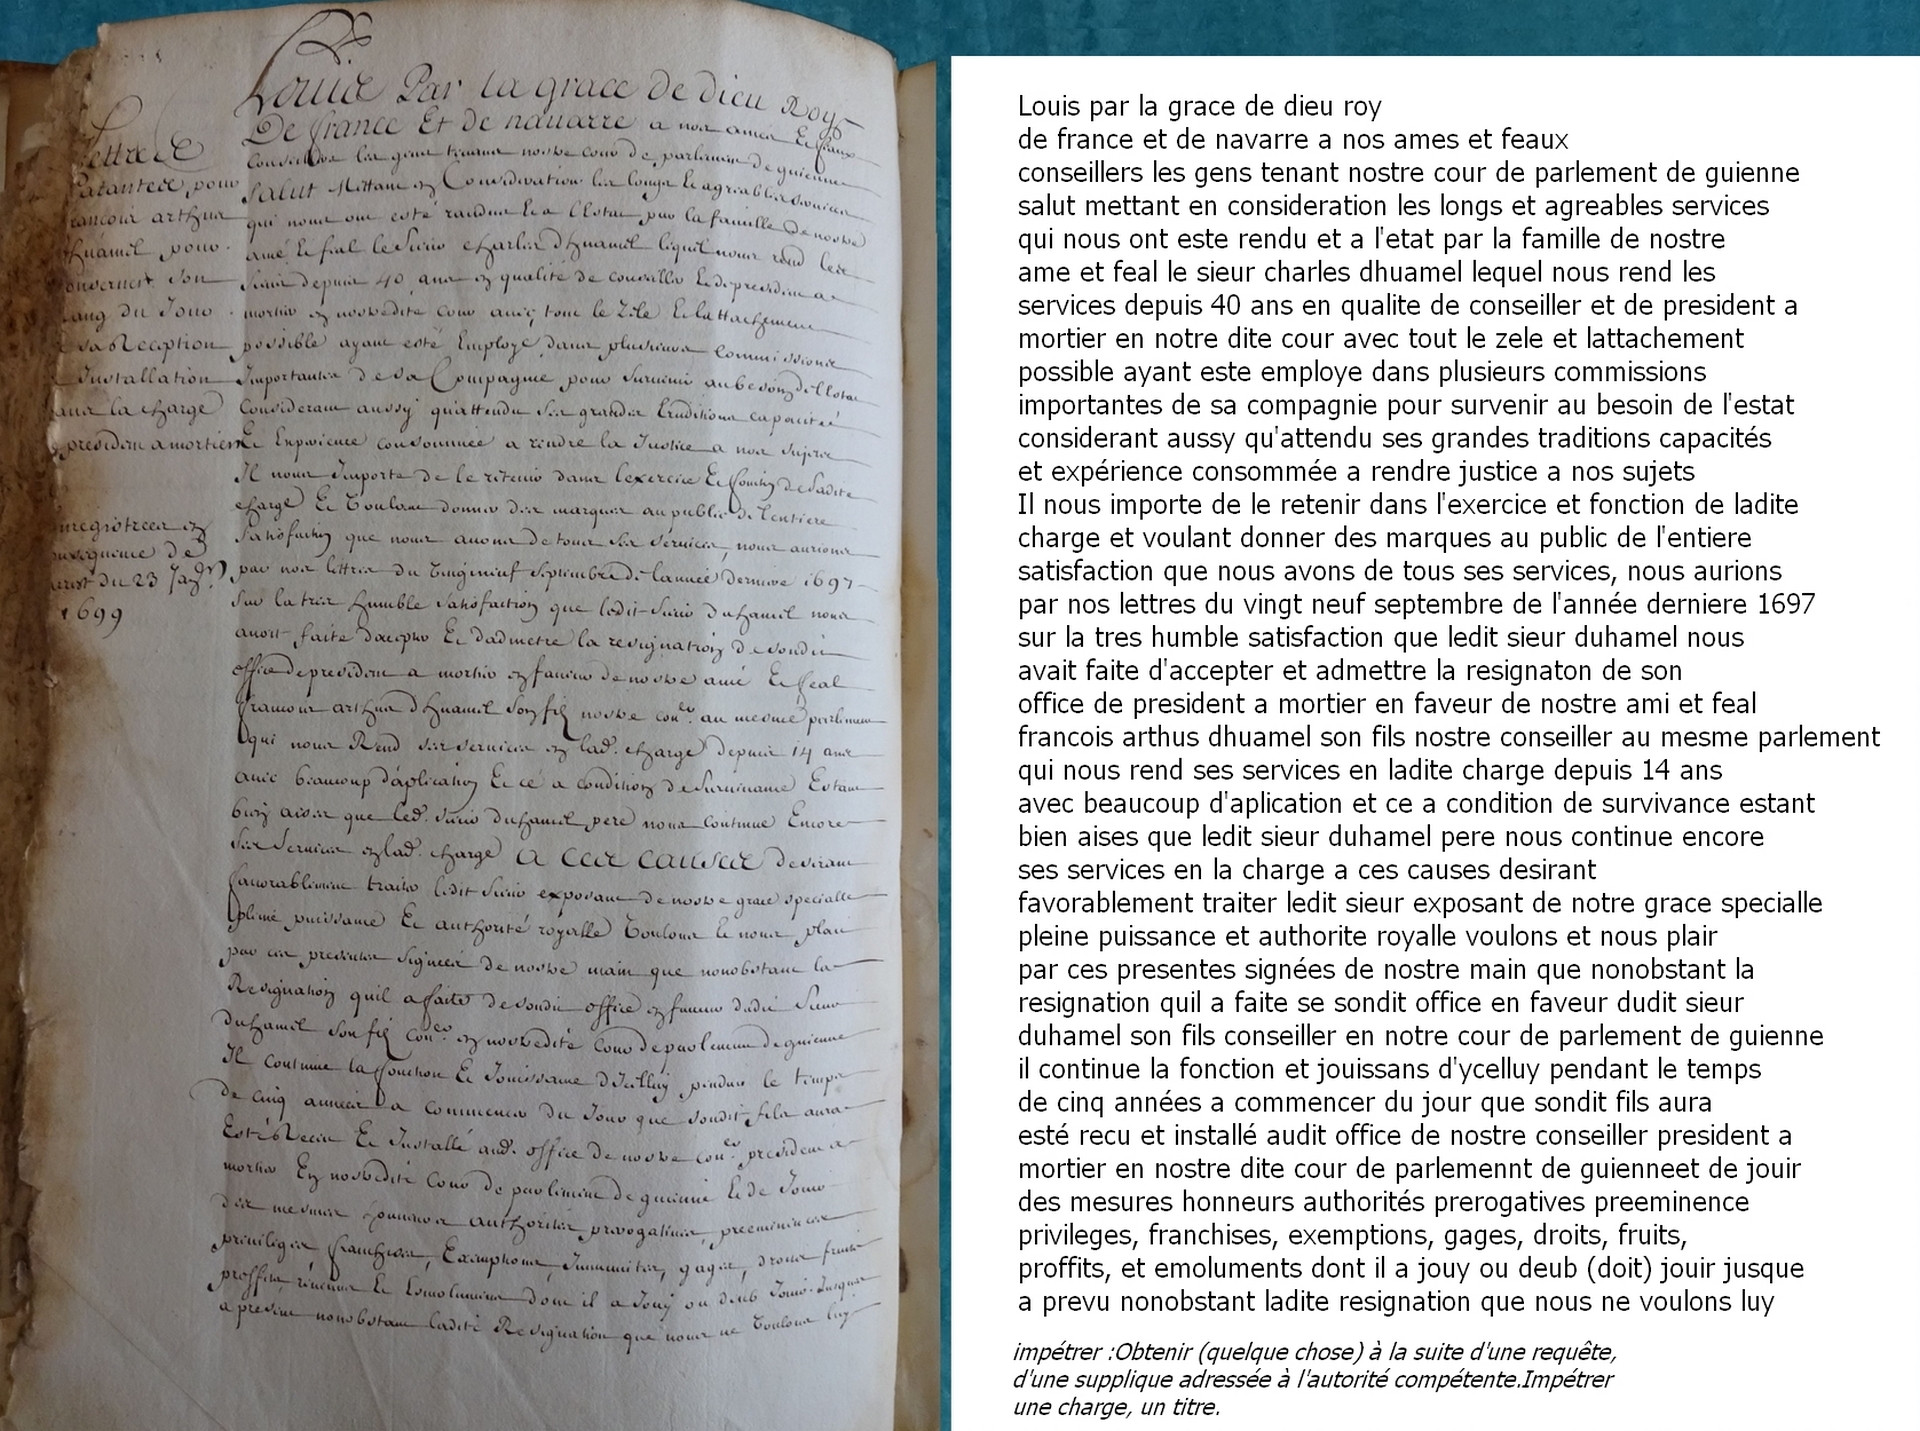 Louis Par la grace de dieu Roy
De france Et de nauarre a nos amez Et feaux
Conseillers les gens tenans nostre cour de parlement de guienne
Salut Mettant en Consideration les longs Et agreables seruices
qui nous ont esté randus Et a l'Estat par la famille de nostre
amé Et feal le Sieur charles dhuamel lequel nous rend
depuis 40 ans en qualité de conseiller Et de president a
mortier en nostredite cour auec tout le Zele Et lattachement
possible ayant esté Employé dans plusieurs commissions
Importantes de sa Compagnie pour suruenir au besoin de l'Estat
Considerant aussy qu'attendu ses grandes Eruditions capacité
Et Experience consommée a rendre la Justice a nos sujets
Il nous Importe de le retenir dans lexercice Et fonction de ladite
charge Et Voulant donner des marques au public de l'entiere
Satisfaction que nous auons de tous ses seruices, nous aurions
par nos lettres du Vingt neuf Septembre de l'année derniere 1697
Sur la tres humble que ledit Sieur duhamel nous
auoit faite daccepter Et dadmetre la resignation de sondit
office de president a mortier en faueur de nostre amé Et feal
francois arthus dhuamel Son fils nostre con.er au mesme parlement
qui nous Rend ses seruices en lad. charge depuis 14 ans
auec beaucoup d'aplication Et ce a condition de Suruiuance Estant
bien aises que led. Sieur duhamel pere nous continue Encore
Ses Seruices en lad. charge A ces causes desirant
fauorablement traiter ledit Sieur exposant de nostre grace specialle
pleine puissance Et authorité royalle Voulons Et nous plait
par ces presentes signées de nostre main que nonobstant la
Resignation quil a faite de sondit office en faueur dudit Sieur
duhamel son fils con.er en nostredite cour de parlement de guienne
Il continue la fonction Et Jouissance d'Icelluy pendant le temps
de cinq années a commencer du Jour que sondit fils aura
Esté Receu Et Installé aud. office de nostre con.er president a
mortier En nostredite Cour de parlement de guienne Et de Jouir
des mesmes honneurs authorités prerogatiues, preeminences
priuileges franchises, Exemptions, Immunites, gages, droits fruits
proffits, reuenus Et Emolumens dont il a Jouy ou deub Jouir Jusques
a present nonobstant ladite Resignation que nous ne Voulons luy
Lettres
Patantes, pour
francois arthus
dhuamel pour
conserver son
rang du Jour
de sa Reception
Installation
dans la charge
president a mortier
enregistrées en
consequence de
arrest du 23 Jan.er
1699
Louis par la grace de dieu roy
de france et de navarre a nos ames et feaux
conseillers les gens tenant nostre cour de parlement de guienne
salut mettant en consideration les longs et agreables services
qui nous ont este rendu et a l'etat par la famille de nostre
ame et feal le sieur charles dhuamel lequel nous rend les
services depuis 40 ans en qualite de conseiller et de president a
mortier en notre dite cour avec tout le zele et lattachement
possible ayant este employe dans plusieurs commissions
importantes de sa compagnie pour survenir au besoin de l'estat
considerant aussy qu'attendu ses grandes traditions capacités
et expérience consommée a rendre justice a nos sujets
Il nous importe de le retenir dans l'exercice et fonction de ladite
charge et voulant donner des marques au public de l'entiere
satisfaction que nous avons de tous ses services, nous aurions
par nos lettres du vingt neuf septembre de l'année derniere 1697
sur la tres humble satisfaction que ledit sieur duhamel nous
avait faite d'accepter et admettre la resignaton de son
office de president a mortier en faveur de nostre ami et feal
francois arthus dhuamel son fils nostre conseiller au mesme parlement
qui nous rend ses services en ladite charge depuis 14 ans
avec beaucoup d'aplication et ce a condition de survivance estant
bien aises que ledit sieur duhamel pere nous continue encore
ses services en la charge a ces causes desirant
favorablement traiter ledit sieur exposant de notre grace specialle
pleine puissance et authorite royalle voulons et nous plair
par ces presentes signées de nostre main que nonobstant la
resignation quil a faite se sondit office en faveur dudit sieur
duhamel son fils conseiller en notre cour de parlement de guienne
il continue la fonction et jouissans d'ycelluy pendant le temps
de cinq années a commencer du jour que sondit fils aura
esté recu et installé audit office de nostre conseiller president a
mortier en nostre dite cour de parlemennt de guienneet de jouir
des mesures honneurs authorités prerogatives preeminence
privileges, franchises, exemptions, gages, droits, fruits,
proffits, et emoluments dont il a jouy ou deub (doit) jouir jusque
a prevu nonobstant ladite resignation que nous ne voulons luy
impétrer :Obtenir (quelque chose) à la suite d'une requête,
d'une supplique adressée à l'autorité compétente.Impétrer
une charge, un titre.